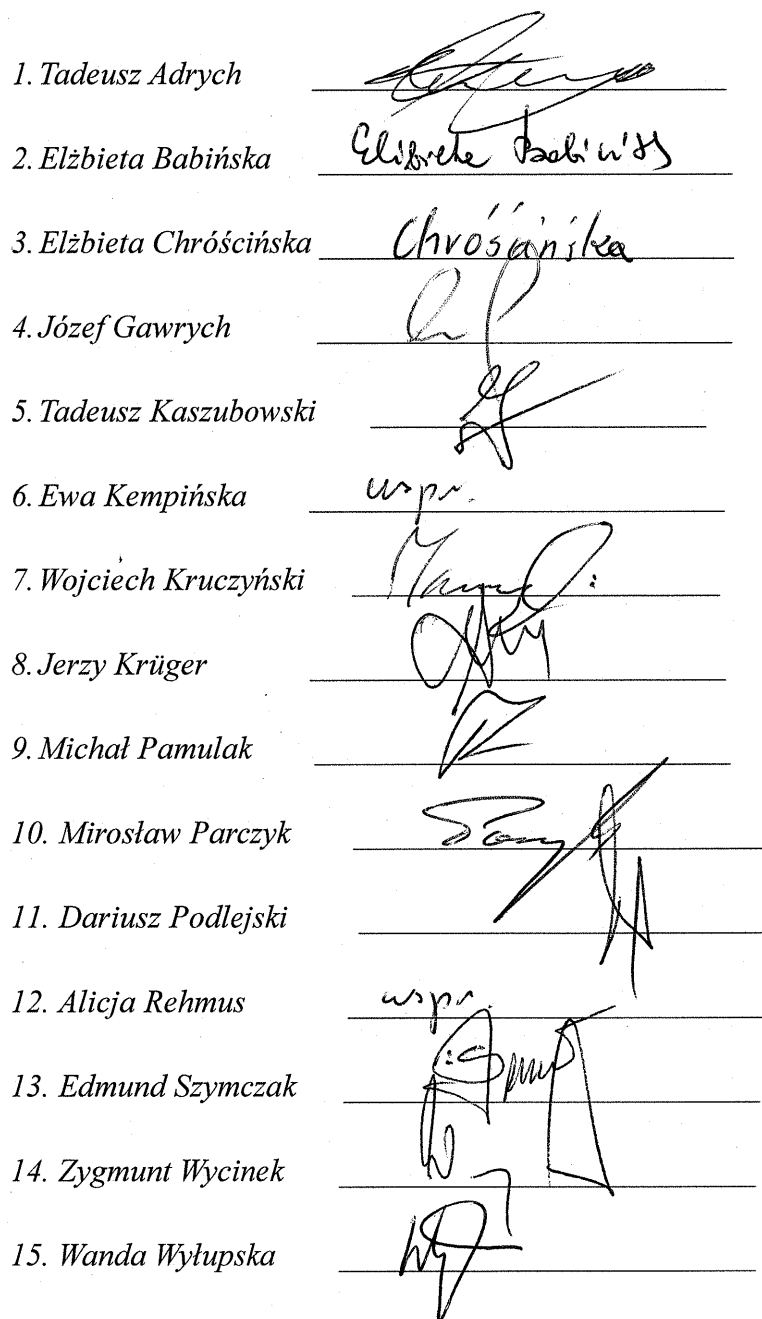 1. Tadeusz Adrych
2. Elżbieta Babińska Elżbieta Babińska
3. Elżbieta Chróścińska Chróścińska
4. Józef Gawrych
5. Tadeusz Kaszubowski
6. Ewa Kempińska uspr.
7. Wojciech Kruczyński
8. Jerzy Krüger
9. Michał Pamulak
10. Mirosław Parczyk
11. Dariusz Podlejski
12. Alicja Rehmus uspr.
13. Edmund Szymczak
14. Zygmunt Wycinek
15. Wanda Wyłupska